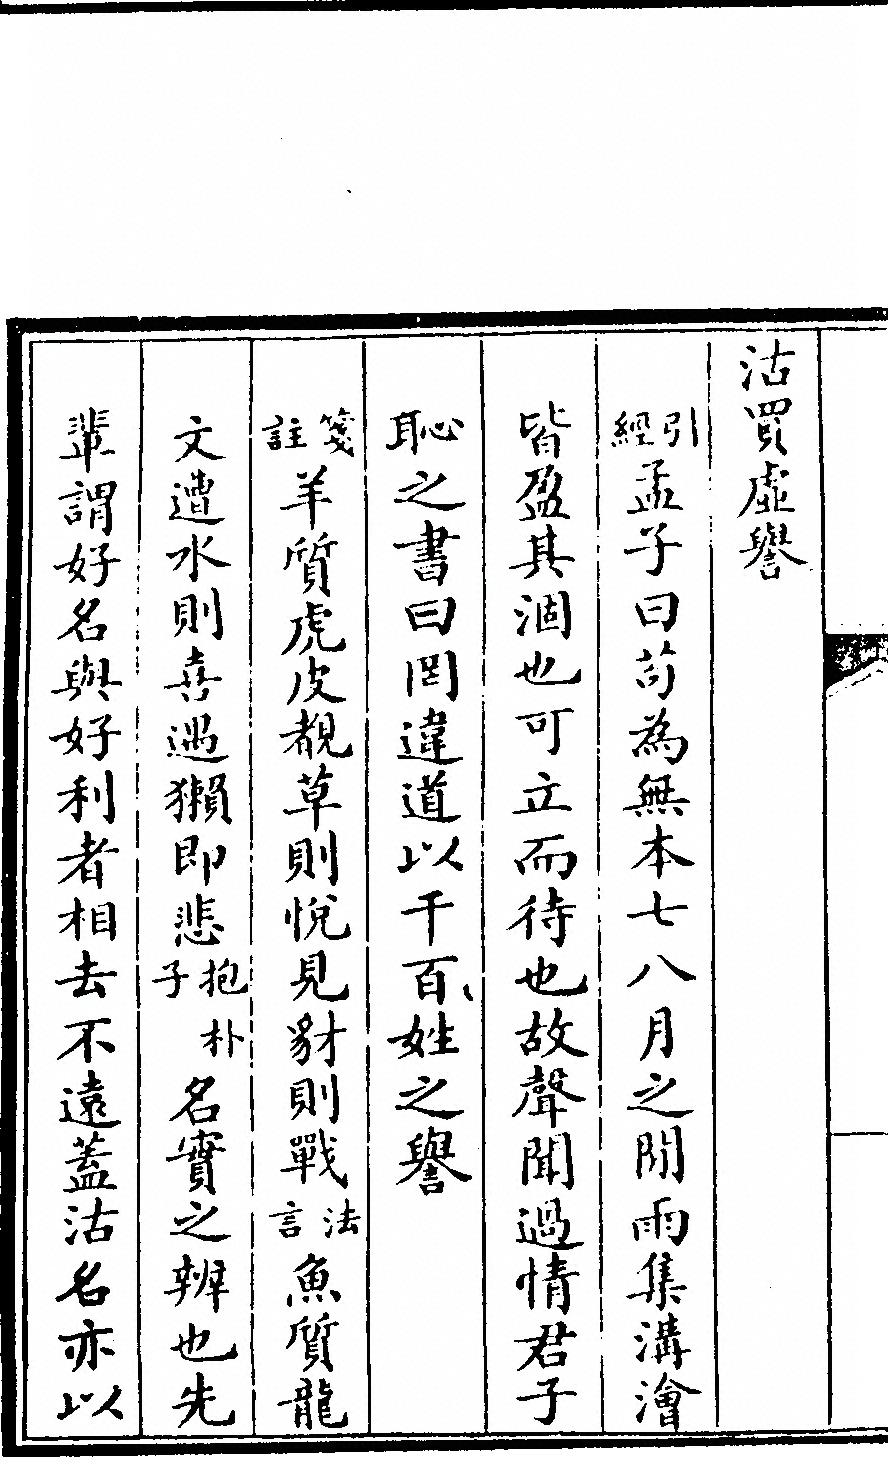 沽買虛譽
引經孟子曰苟為無本七八月之閒雨集溝澮
皆盈其涸也可立而待也故聲聞過情君子
恥之書曰罔違道以干百姓之譽
箋註羊質虎皮覩草則悅見豺則戰法言魚質龍
文遭水則喜遇獺即悲抱朴子名實之辨也先
輩謂好名與好利者相去不遠蓋沽名亦以